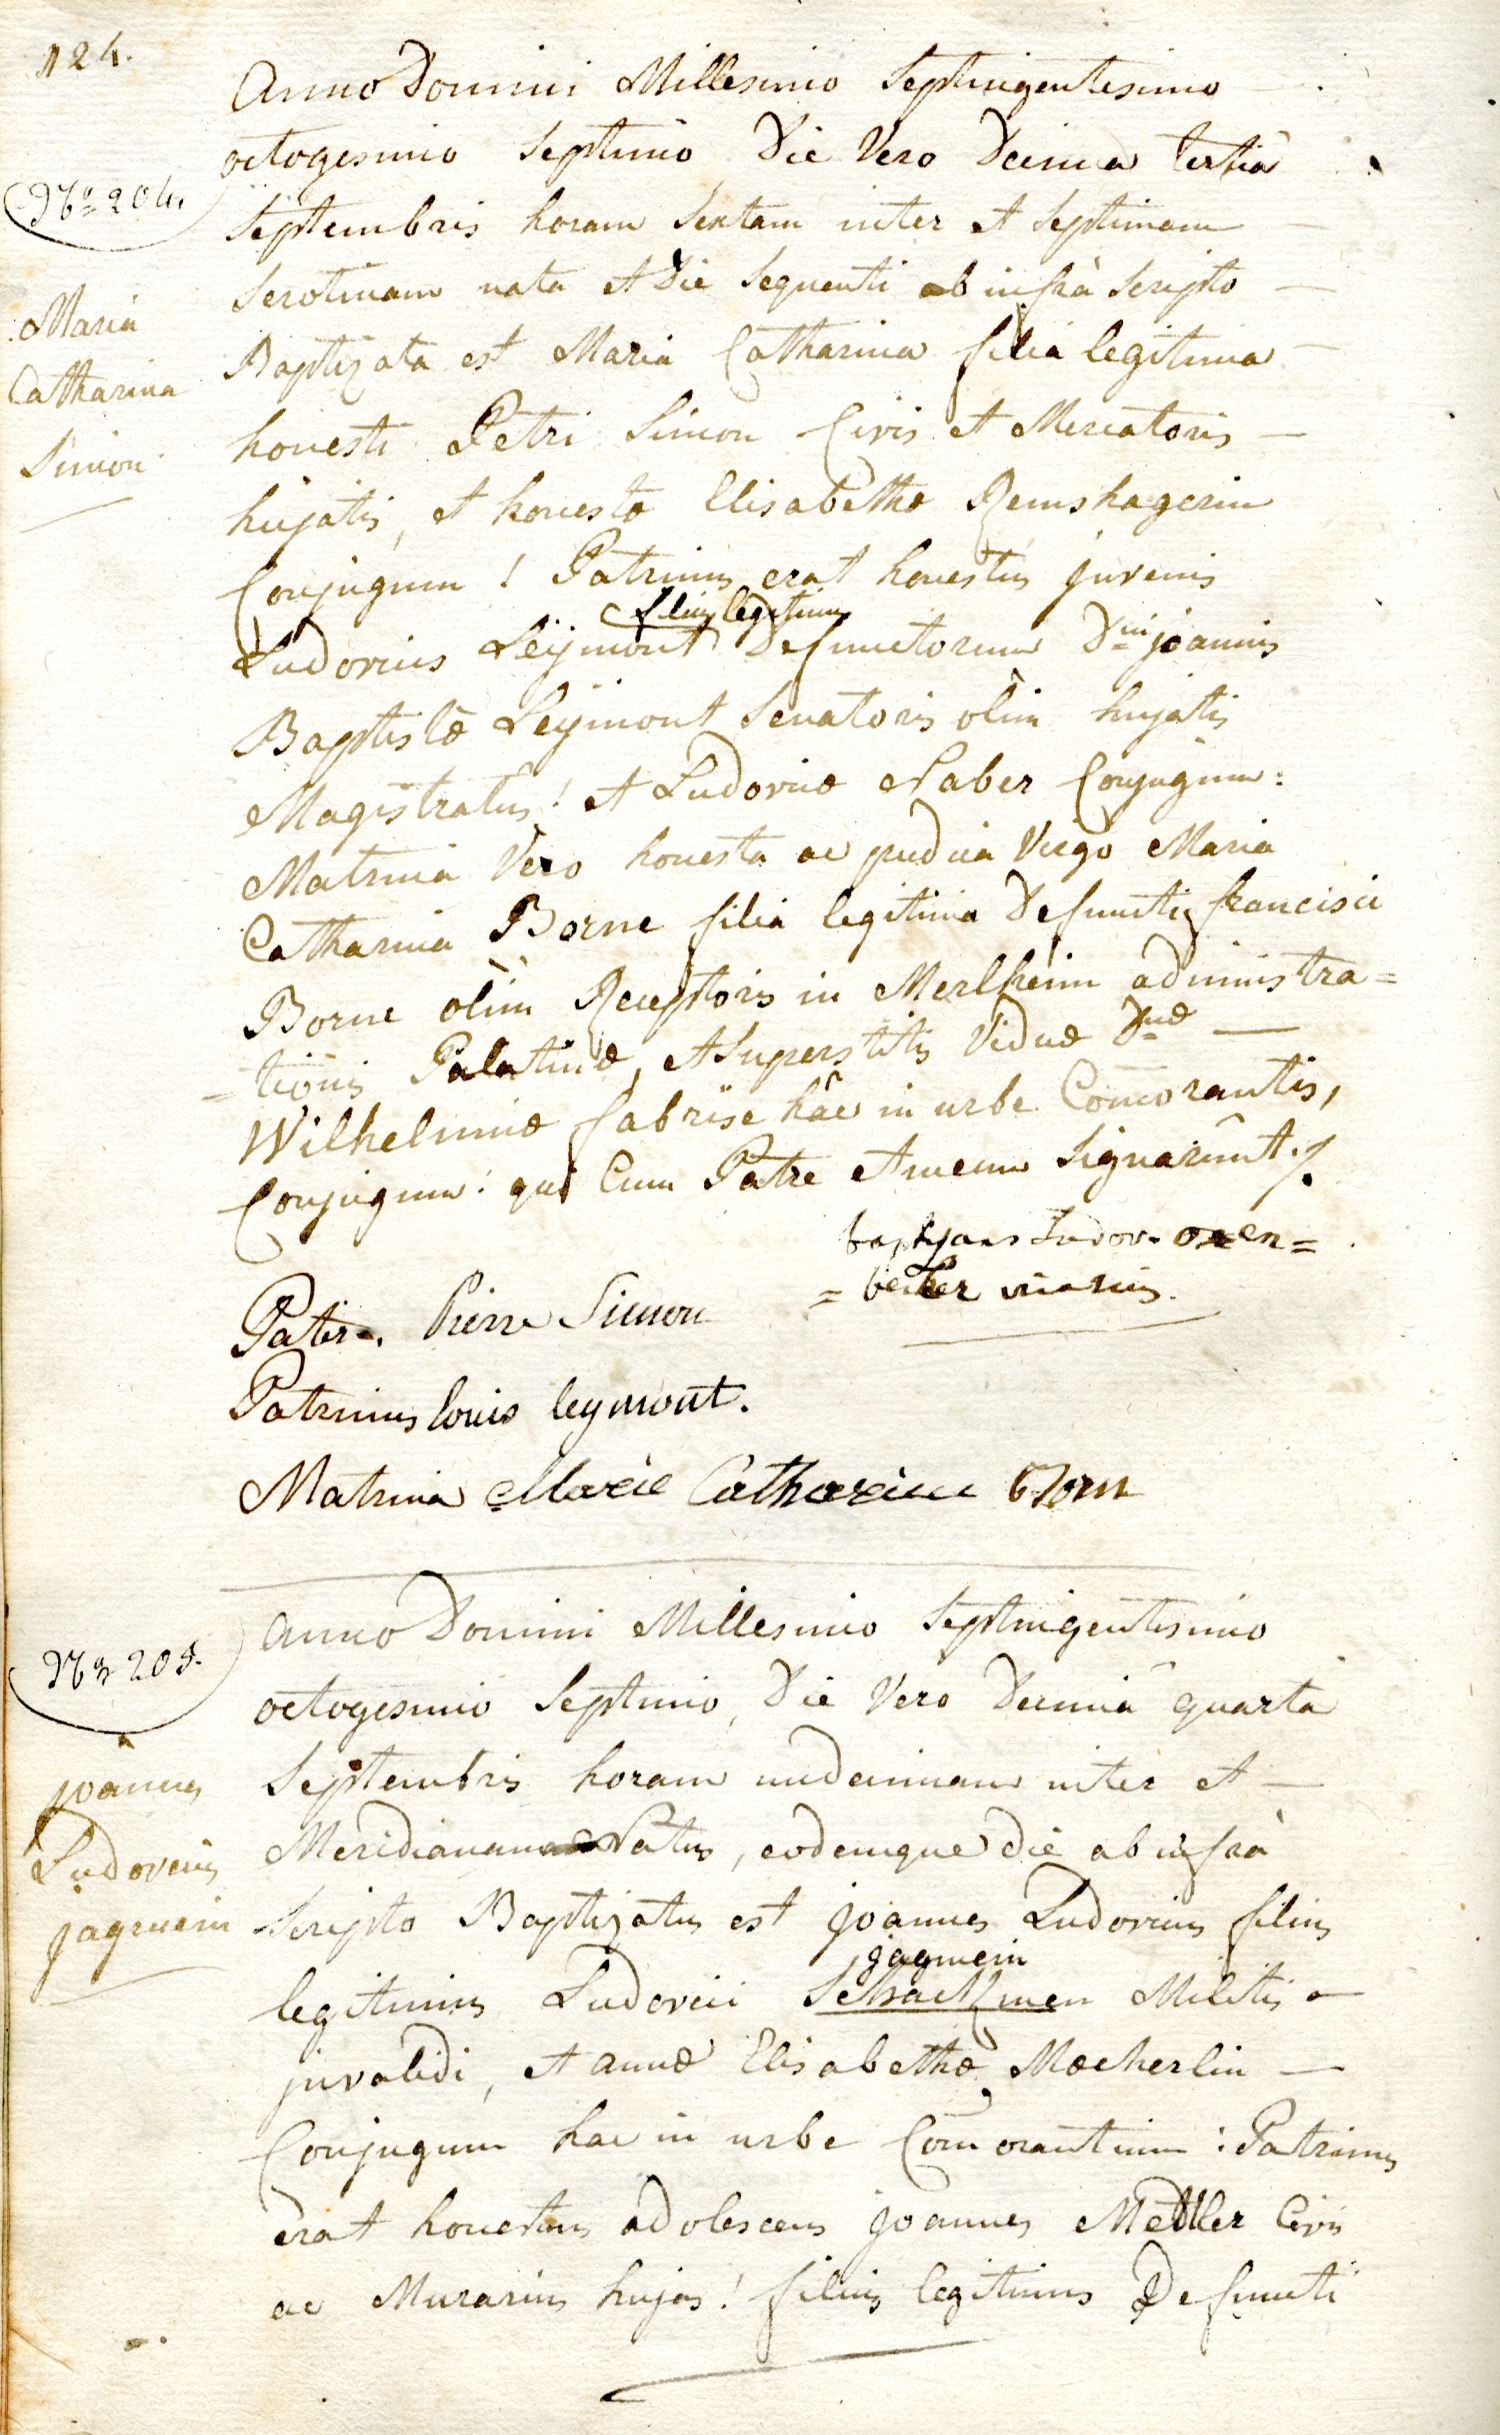 124.
Anno Domini Millesimo Septingentesimo
octogesimo Septimo Die Vero Decima tertia
Nº 204.
Septembris horam Sextam inter et Septimam
Serotinam nata et Die Sequenti ab infrà Scripto
Maria
Catharina
Simon
Baptizata est Maria Catharina filia legitima
honesti Petri Simon Civis et Mercatoris
hujatis, et honestæ Elisabethæ Remshagerin
Conjugum! Patrinus erat honestus juvenis
filius legitimus
Ludovicus Leÿmont Defunctorum Dni joannis
Baptistæ Leÿmont Senatoris olim hujatis
Magistratûs! et Ludovicæ Naber Conjugum:
Matrina Vero honesta ac pudica Virgo Maria
Catharina Borne filia legitima Defuncti francisci
Borne olim Receptoris in Merlheim administra=
=tionis Palatinæ, et Superstitis Viduæ Dnæ
Wilhelminæ fabrise hâc in urbe Comorantis,
Conjugum! qui Cum Patre et mecum Signarunt ./.
baptizans Ludov. oxen=
=becker vicarius.
Pater. Pierre Simon
Patrinus louis leymont.
Matrina Marie Catharine Born
Nº 205.
anno Domini Millesimo Septingentesimo
octogesimo Septimo, Die Vero Decimâ quarta
Septembris horam undecimam inter et
Meridianam Natus, eodemque die ab infrà
joannes
Ludovicus
jagmein
Scripto Baptizatus est joannes Ludovicus filius
jagmein
legitimus Ludovici Militis
invalidi, et annæ Elisabethæ Mæcherlin
Conjugum hac in urbe Comorantium: Patrinus
erat honestus adolescens joannes Medler Civis
ac Murarius hujas! filius legitimus Defuncti